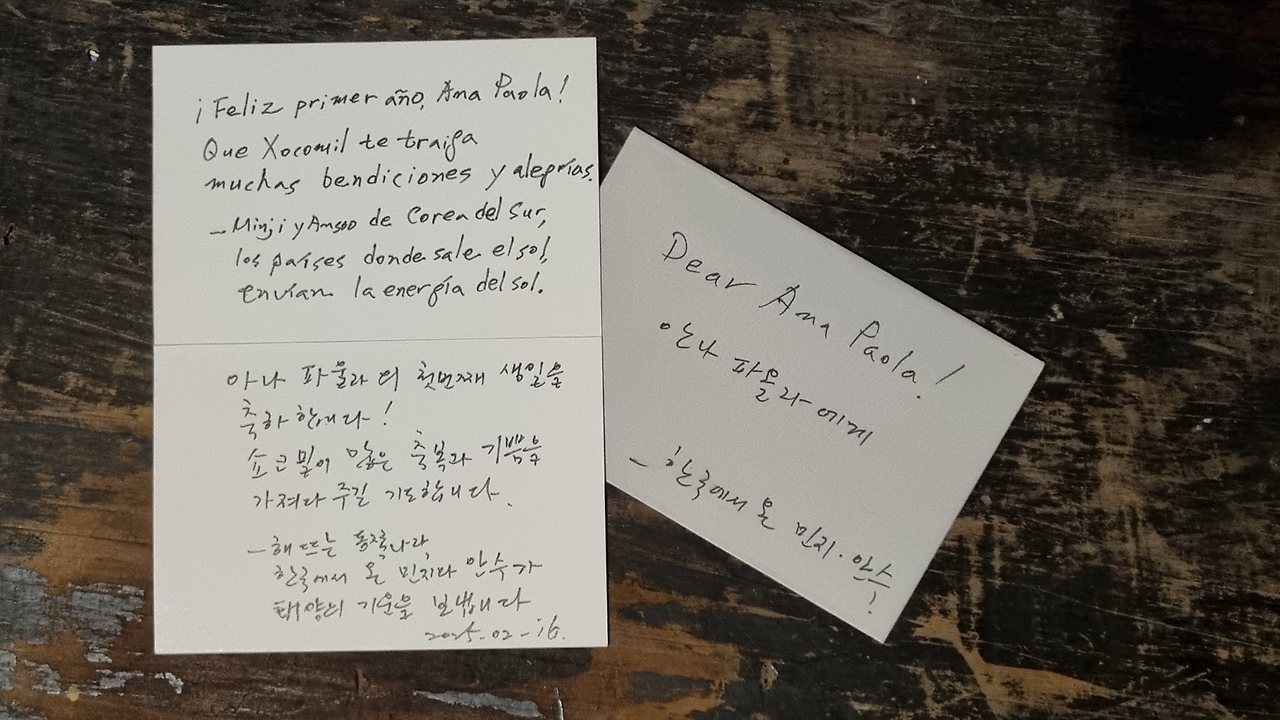 ¡Feliz primer año, Ana Paola!
Que Xocomil te traiga
muchas bendiciones y alegrías.
- Minji y Ansoo de Corea del Sur,
los países donde sale el sol,
envían la energía del sol.
아나 파울라의 첫번째 생일을
축하합니다!
쇼코밀이 많은 축복과 기쁨을
가져다 주길 기도합니다.
- 해 뜨는 동쪽나라,
한국에서 온 민지와 안수가
태양의 기운을 보냅니다
2025-02-16.
Dear Ana Paola!
안나 파올라에게
- 한국에서 온 민지·안수!